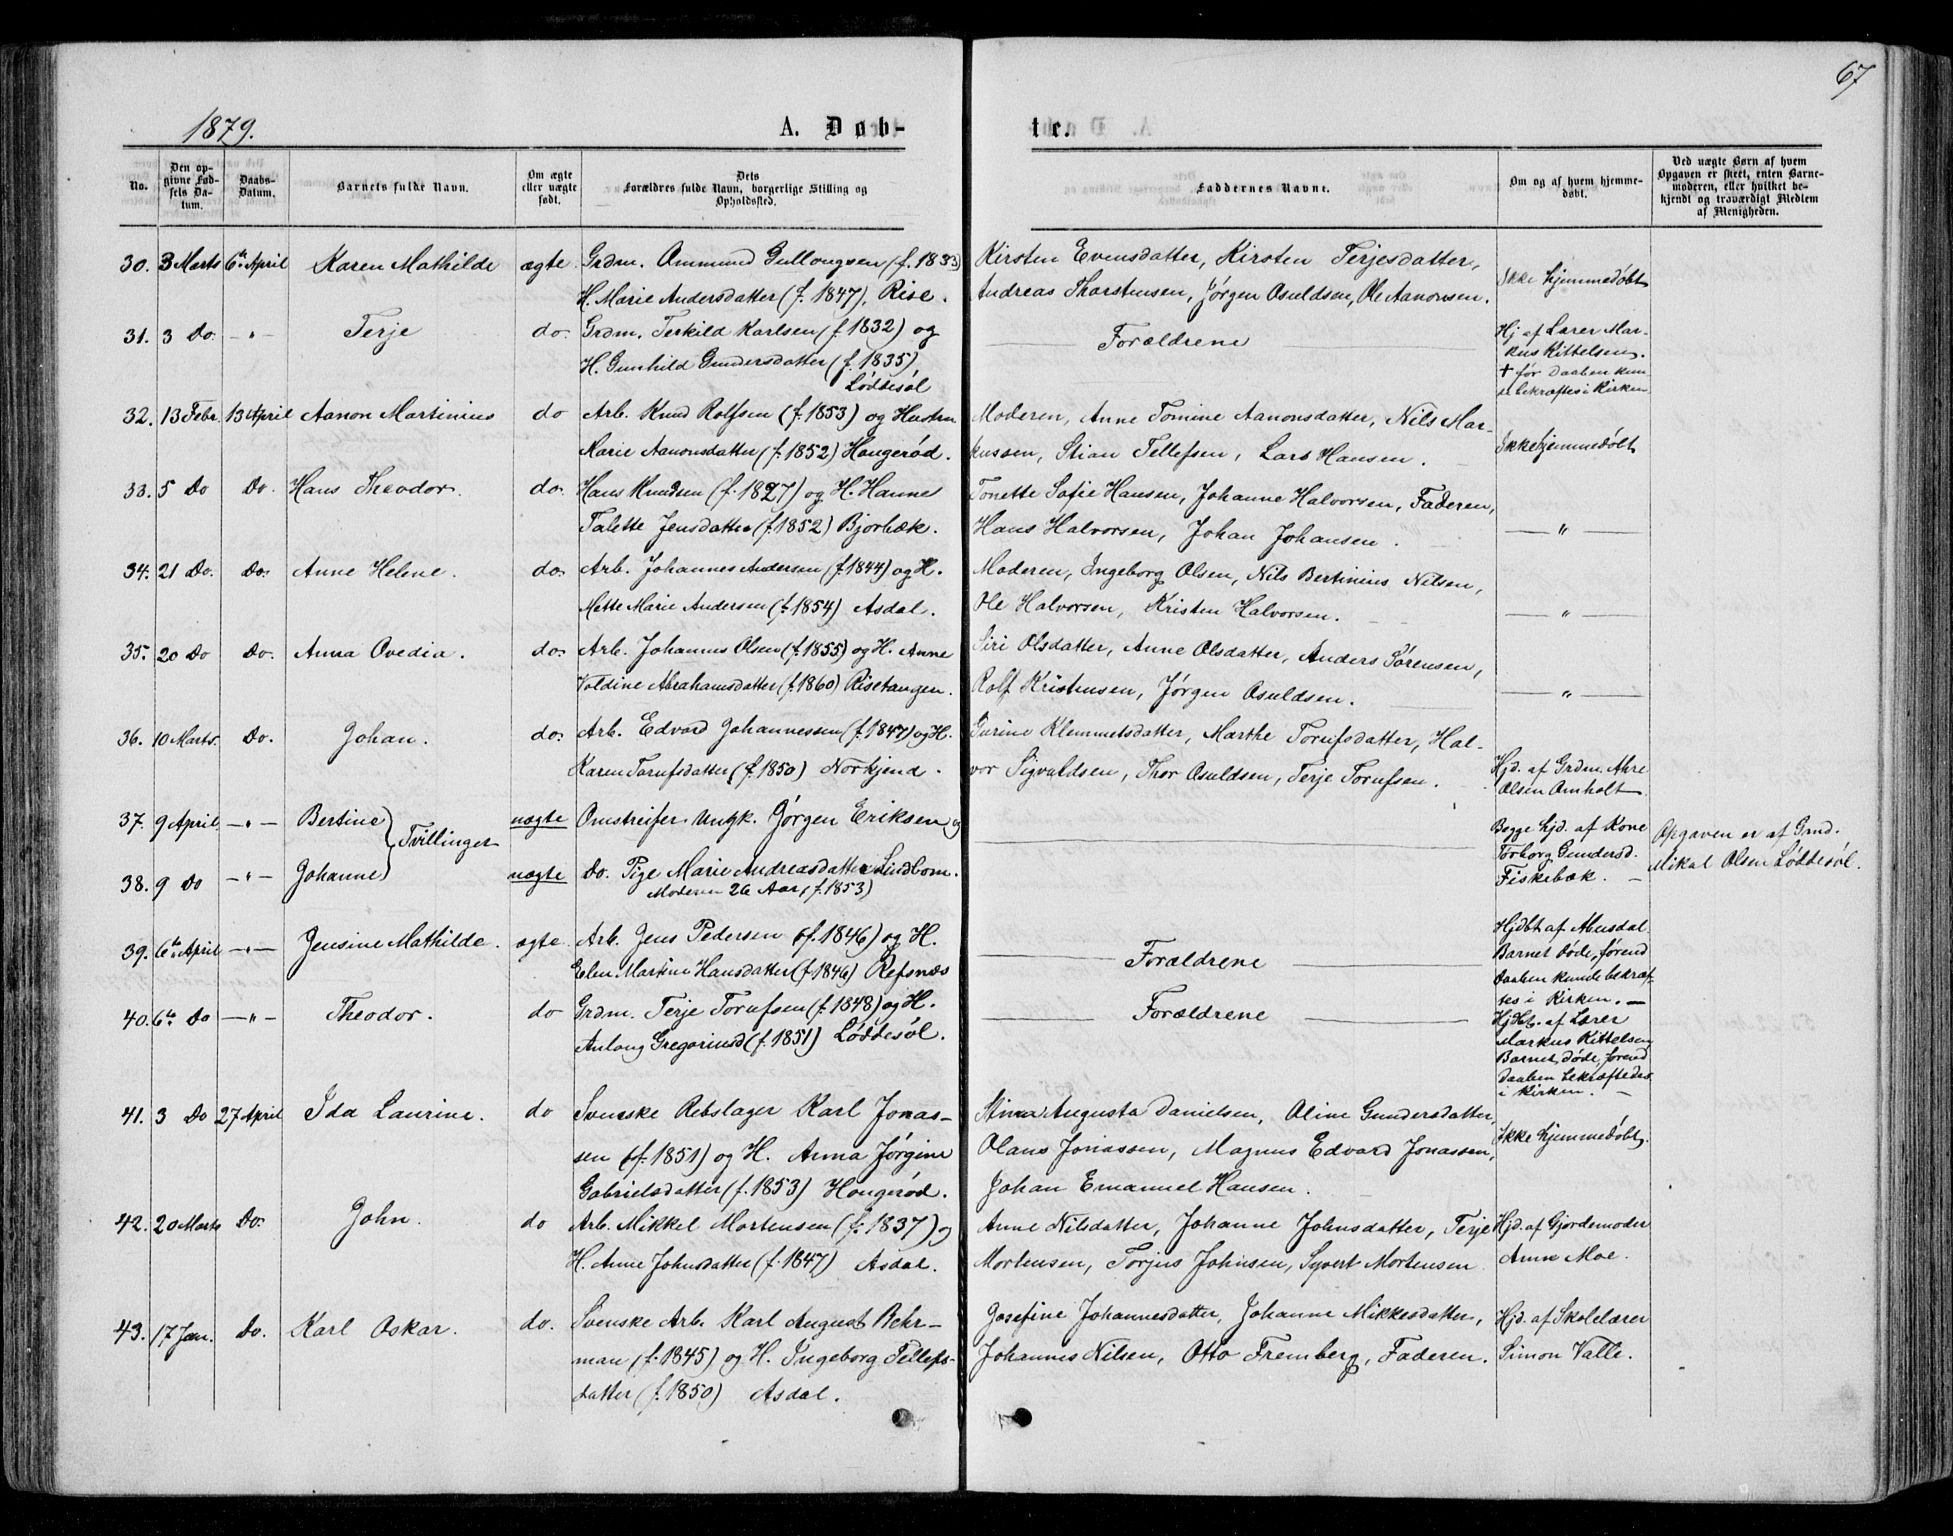 67
1879.
A. Døb-
te.
No.
Den opgivne Fødsels Datum.
Daabs-Datum.
Barnets fulde Navn.
Om ægte eller uægte født.
Dets Forældres fulde Navn, borgerlige Stilling og Opholdssted.
Faddernes Navne.
Om og af hvem hjemmedøbt.
Ved uægte Børn af hvem Opgaven er skeet, enten Barnemoderen, eller hvilket bekjendt og troværdigt Medlem af Menigheden.
30. 3 Marts 6te April Karen Mathilde ægte Grdm. Ommund Gullougsen (f. 1833)
H. Marie Andersdatter (f. 1847), Rise.
Kirsten Evensdatter, Kirsten Terjesdatter,
Andreas Thorstensen, Jørgen Osuldsen, Ole Aanonsen.
Ikke hjemmedøbt
31. 3 Do. — " — Terje do. Grdm. Terkild Karlsen (f. 1832) og
H. Gunhild Gundersdatter (f. 1835)
Løddesøl
Forældrene
Hj. af Lærer Mar-
kus Kittelsen.
+ før Daaben kun-
de bekræftes i Kirken
32. 13 Febr. 13 April Aanon Martinius do Arb. Knud Rolfsen (f. 1853) og Hustru
Marie Aanonsdatter (f. 1852) Hougerød.
Moderen, Anne Tomine Aanonsdatter, Nils Mar-
kussen, Stian Tellefsen, Lars Hansen.
Ikke hjemmedøbt
33. 5 Do Do. Hans Theodor. do. Hans Knudsen (f. 1827) og H. Hanne
Talette Jensdatter (f. 1852) Bjorbæk.
Tonette Sofie Hansen, Johanne Halvorsen, Faderen,
Hans Halvorsen, Johan Johansen.
— " —
34. 21 Do. Do. Anne Helene. do. Arb. Johannes Andersen (f. 1844) og H.
Mette Marie Andersen (f. 1854) Asdal.
Moderen, Ingeborg Olsen, Nils Bertinius Nilsen,
Ole Halvorsen, Kristen Halvorsen.
— " —
35. 20 Do Do. Anna Ovedia. do. Arb. Johannes Olsen (f. 1855) og H. Anne
Voldine Abrahamsdatter (f. 1860) Risetangen.
Siri Olsdatter, Anne Olsdatter, Anders Sørensen,
Rolf Kristensen, Jørgen Osuldsen.
— " —
36. 10 Marts. Do. Johan. do. Arb. Edvard Johannessen (f. 1847) og H.
Karen Torufsdatter (f. 1850) Norkjend.
Gurine Klemmetsdatter, Marthe Torufsdatter, Hal-
vor Sigvaldsen, Thor Osuldsen, Terje Torufsen.
Hjd. af Grdm. Åhre
Olsen Omholt
37. 9 April — " — Bertine uægte Omstreifer Ungk. Jørgen Eriksen og
Tvillinger
38. 9 Do — " — Johanne uægte Do. Pige Marie Andreasdatter Lindbom.
Moderen 26 Aar, (f. 1853)
Begge hjd. af Kone
Torborg Gundersd.
Fiskebæk. —
Opgaven er af Grmd.
Mikal Olsen Løddesøl.
39. 6te April — " — Jensine Mathilde. ægte. Arb. Jens Pedersen (f. 1846) og H.
Elen Martine Hansdatter (f. 1846) Refsnæs
Forældrene
Hjdbt af
Barnet døde, førend
Daaben kunde bekræf-
tes i Kirken. —
40. 6te Do — " — Theodor. do Grdm. Terje Torufsen (f. 1848) og H.
Anlaug Gregoriusd (f. 1851) Løddesøl.
Forældrene
Hjdbt. af Lærer
Markus Kittelsen
Barnet døde, førend
Daaben bekræftedes
i Kirken. —
41. 3 Do 27 April Ida Laurine. do Svenske Rebslager Karl Jonas-
sen (f. 1851) og H. Anna Jørgine
Gabrielsdatter (f. 1853) Hougerød.
Stina Augusta Danielsen, Oline Gundersdatter,
Olaus Jonassen, Magnus Edvard Jonassen,
Johan Emanuel Hansen.
Ikke hjemmedøbt.
42. 20 Marts Do. John. do Arb. Mikkel Mortensen (f. 1837) og
H. Anne Johnsdatter (f. 1847) Asdal.
Anne Nilsdatter, Johanne Johnsdatter, Terje
Mortensen, Torjus Johnsen, Syvert Mortensen
Hjd. af Gjordemoder
Anne Moe.
43. 17 Jan. Do. Karl Oskar. do. Svenske Arb. Karl August Behr-
man (f. 1845) og H. Ingeborg Tellefs-
datter (f. 1850) Asdal.
Josefine Johannesdatter, Johanne Mikkesdatter,
Johannes Nilsen, Otto Fremberg, Faderen.
Hjd. af Skolelærer
Simon Valle.